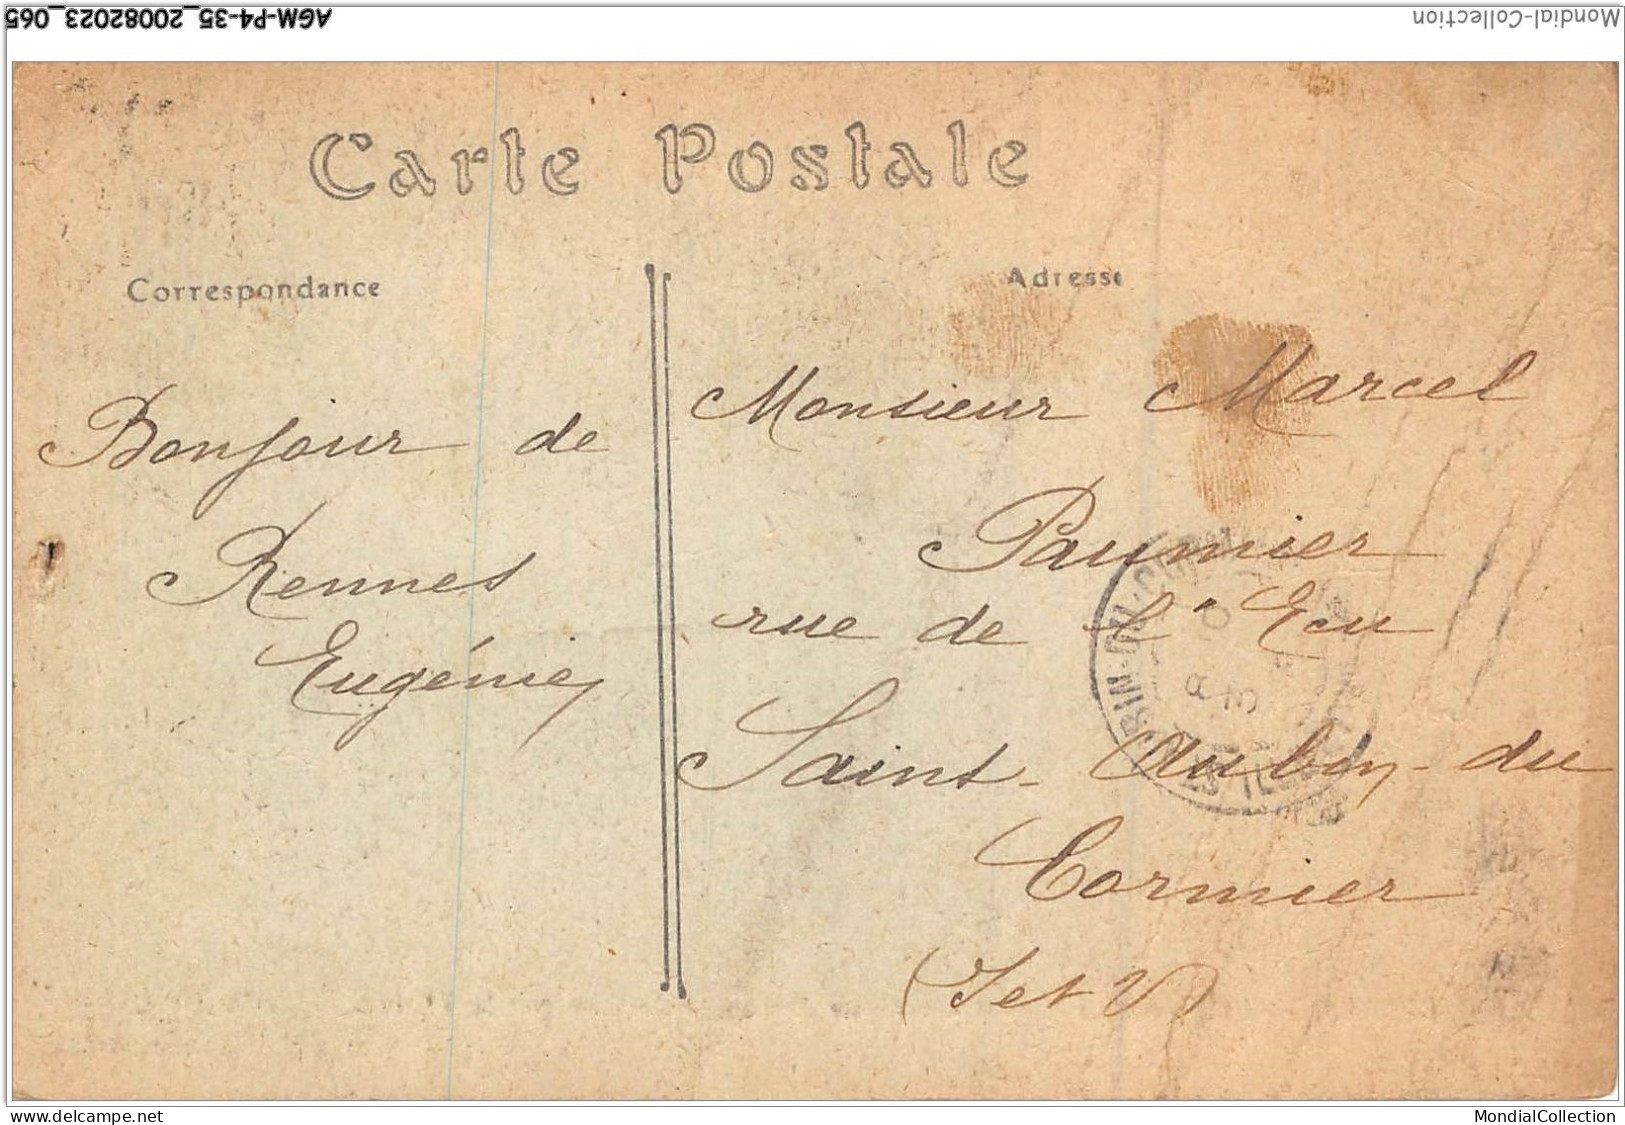 AGM-P4-35_20082023_065
Mondial-Collection
Carte Postale
Correspondance
Adresse
Bonjour de
Rennes
Eugénie
Monsieur Marcel
Paumier
rue de l'Eku
Saint-Aubin-du
Cormier
(I et V)
delcampe.net
MondialCollection